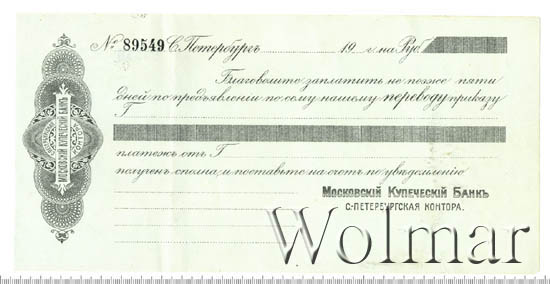 № 89549 С. Петербургъ 19 г. на Руб.
Благоволите заплатить не позже пяти
дней по предъявленіи по сему нашему переводу приказу
Г
платежъ отъ Г
получен сполна, и поставьте на счетъ по увѣдомленію
Московскій Купеческій Банкъ
С-Петербургская Контора.
Московскій Купеческій Банкъ
Wolmar